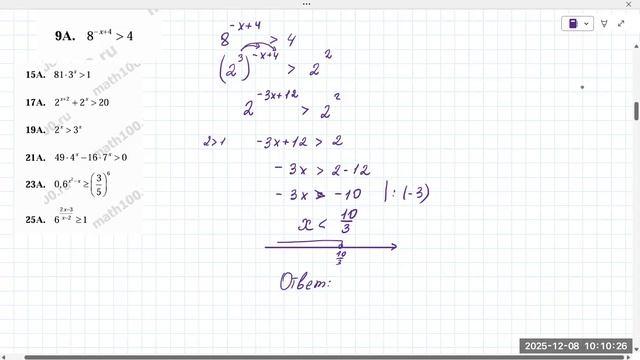 9A. 8^{-x+4} > 4
15A. 81·3^x > 1
17A. 2^{x+2} + 2^x > 20
19A. 2^x > 3^x
21A. 49·4^x − 16·7^x > 0
23A. 0,6^{x^2−x} ≥ (3/5)^6
25A. 6^{\frac{2x−3}{x−2}} ≥ 1
math100.ru
math100.
math100.
8^{-x+4} > 4
(2^3)^{-x+4} > 2^2
2^{-3x+12} > 2^2
2>1 -3x+12 > 2
-3x > 2-12
-3x > -10 |:(-3)
x < 10/3
10/3
Ответ:
2025-12-08 10:10:26